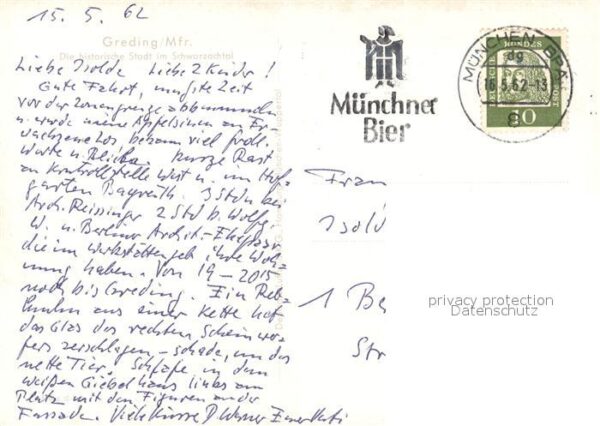 15. 5. 62
Greding/Mfr.
Die historische Stadt im Schwarzachtal
Liebe Isolde Liebe 2 Kinder!
Gute Fahrt, musste Zeit
vor der Zonengrenze abbummeln
u. wurde meine Apfelsinen an Er-
wachsene los, bekam viel fröhl.
Worte u. Blicke. kurze Rast
an Kontrollstelle West u. im Hof-
garten Bayreuth. 3 Stdn bei
Arch. Reissinger 2 Std b. Wolfg.
W. u. Berliner Archit.-Ehepaar
die im Werkstättengeb. ihre Woh-
nung haben. Von 19 – 2015
noch bis Greding. Ein Reb-
huhn aus einer Kette hat
das Glas des rechten Scheinwer-
fers zerschlagen – schade, um das
nette Tier. Schlafe in dem
weißen Giebelhaus links am
Platz mit den Figuren an der
Fassade. Viele Küsse Werner
Münchner
Bier
MÜNCHEN
16.5.62-13
8
10
Frau
Isold
1 Be
Str
privacy protection
Datenschutz